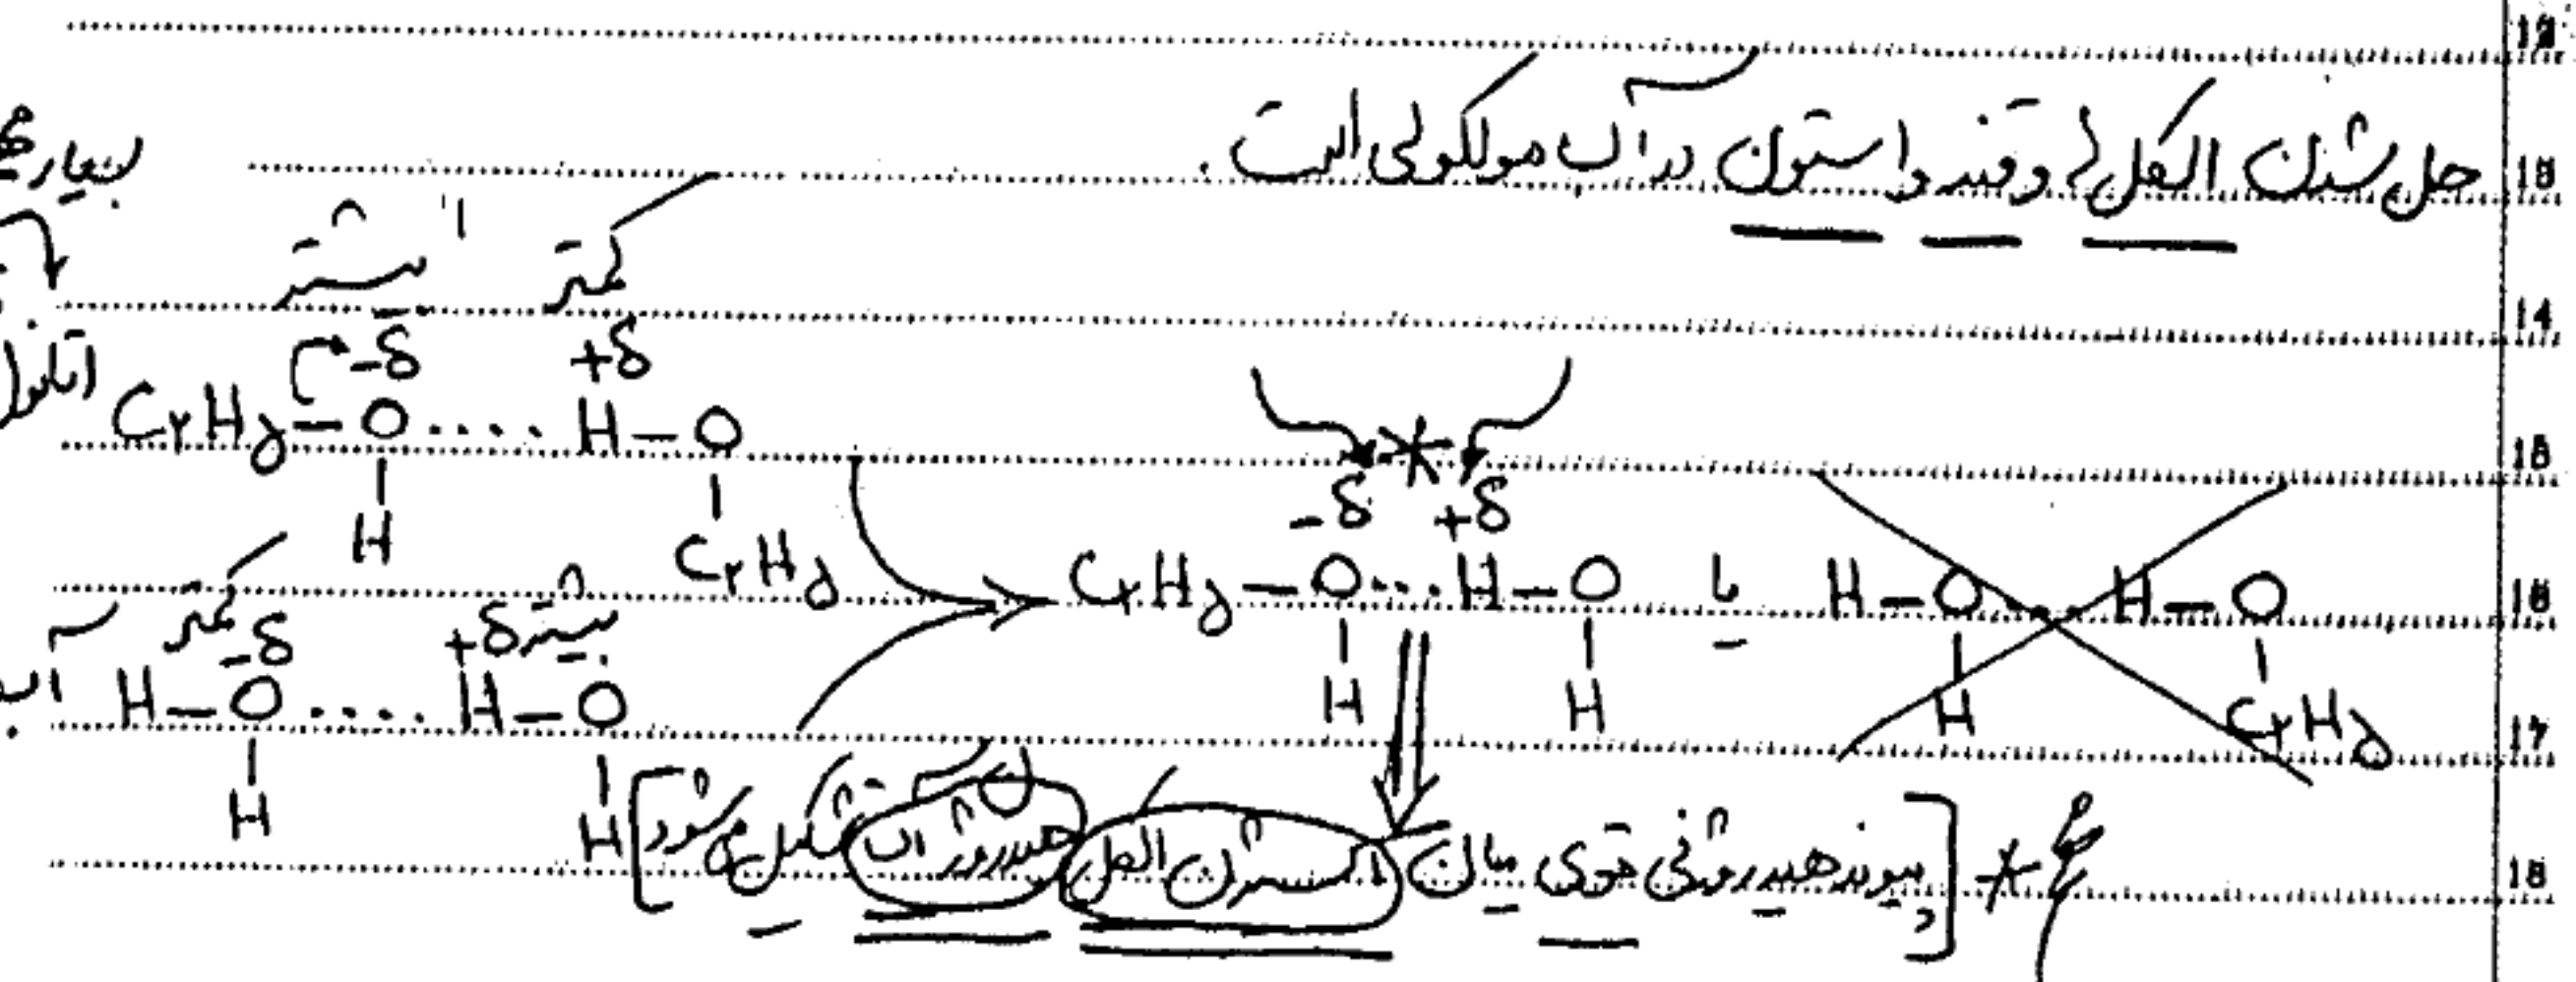 12
13 حل شدن الکل ها و قند و استون در آب مولکولی است.
بسیار مهم
کمتر بیشتر
14
−δ +δ
اتانول C₂H₅−O....H−O
15
H C₂H₅
−δ +δ
16 C₂H₅−O...H−O یا H−O...H−O
H H H C₂H₅
کمتر −δ +δ بیشتر
آب H−O....H−O
17
H H
18 * [پیوند هیدروژنی قوی میان اکسیژن الکل و هیدروژن آب تشکیل می شود]